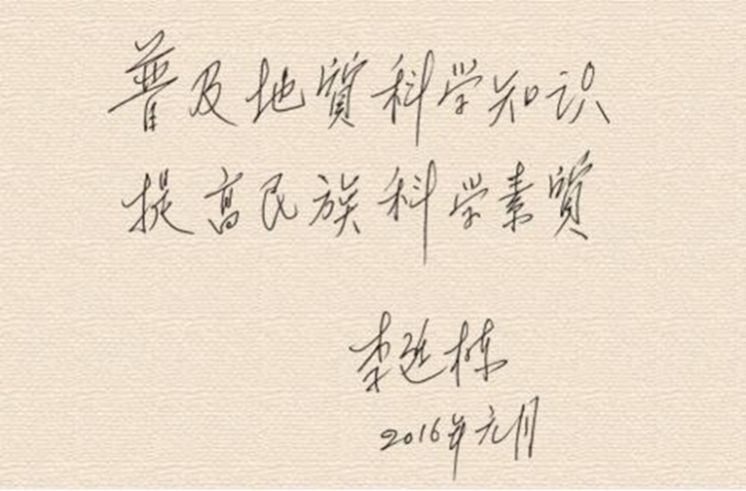 普及地質科学知识
提高民族科学素質
李廷栋
2016年元月